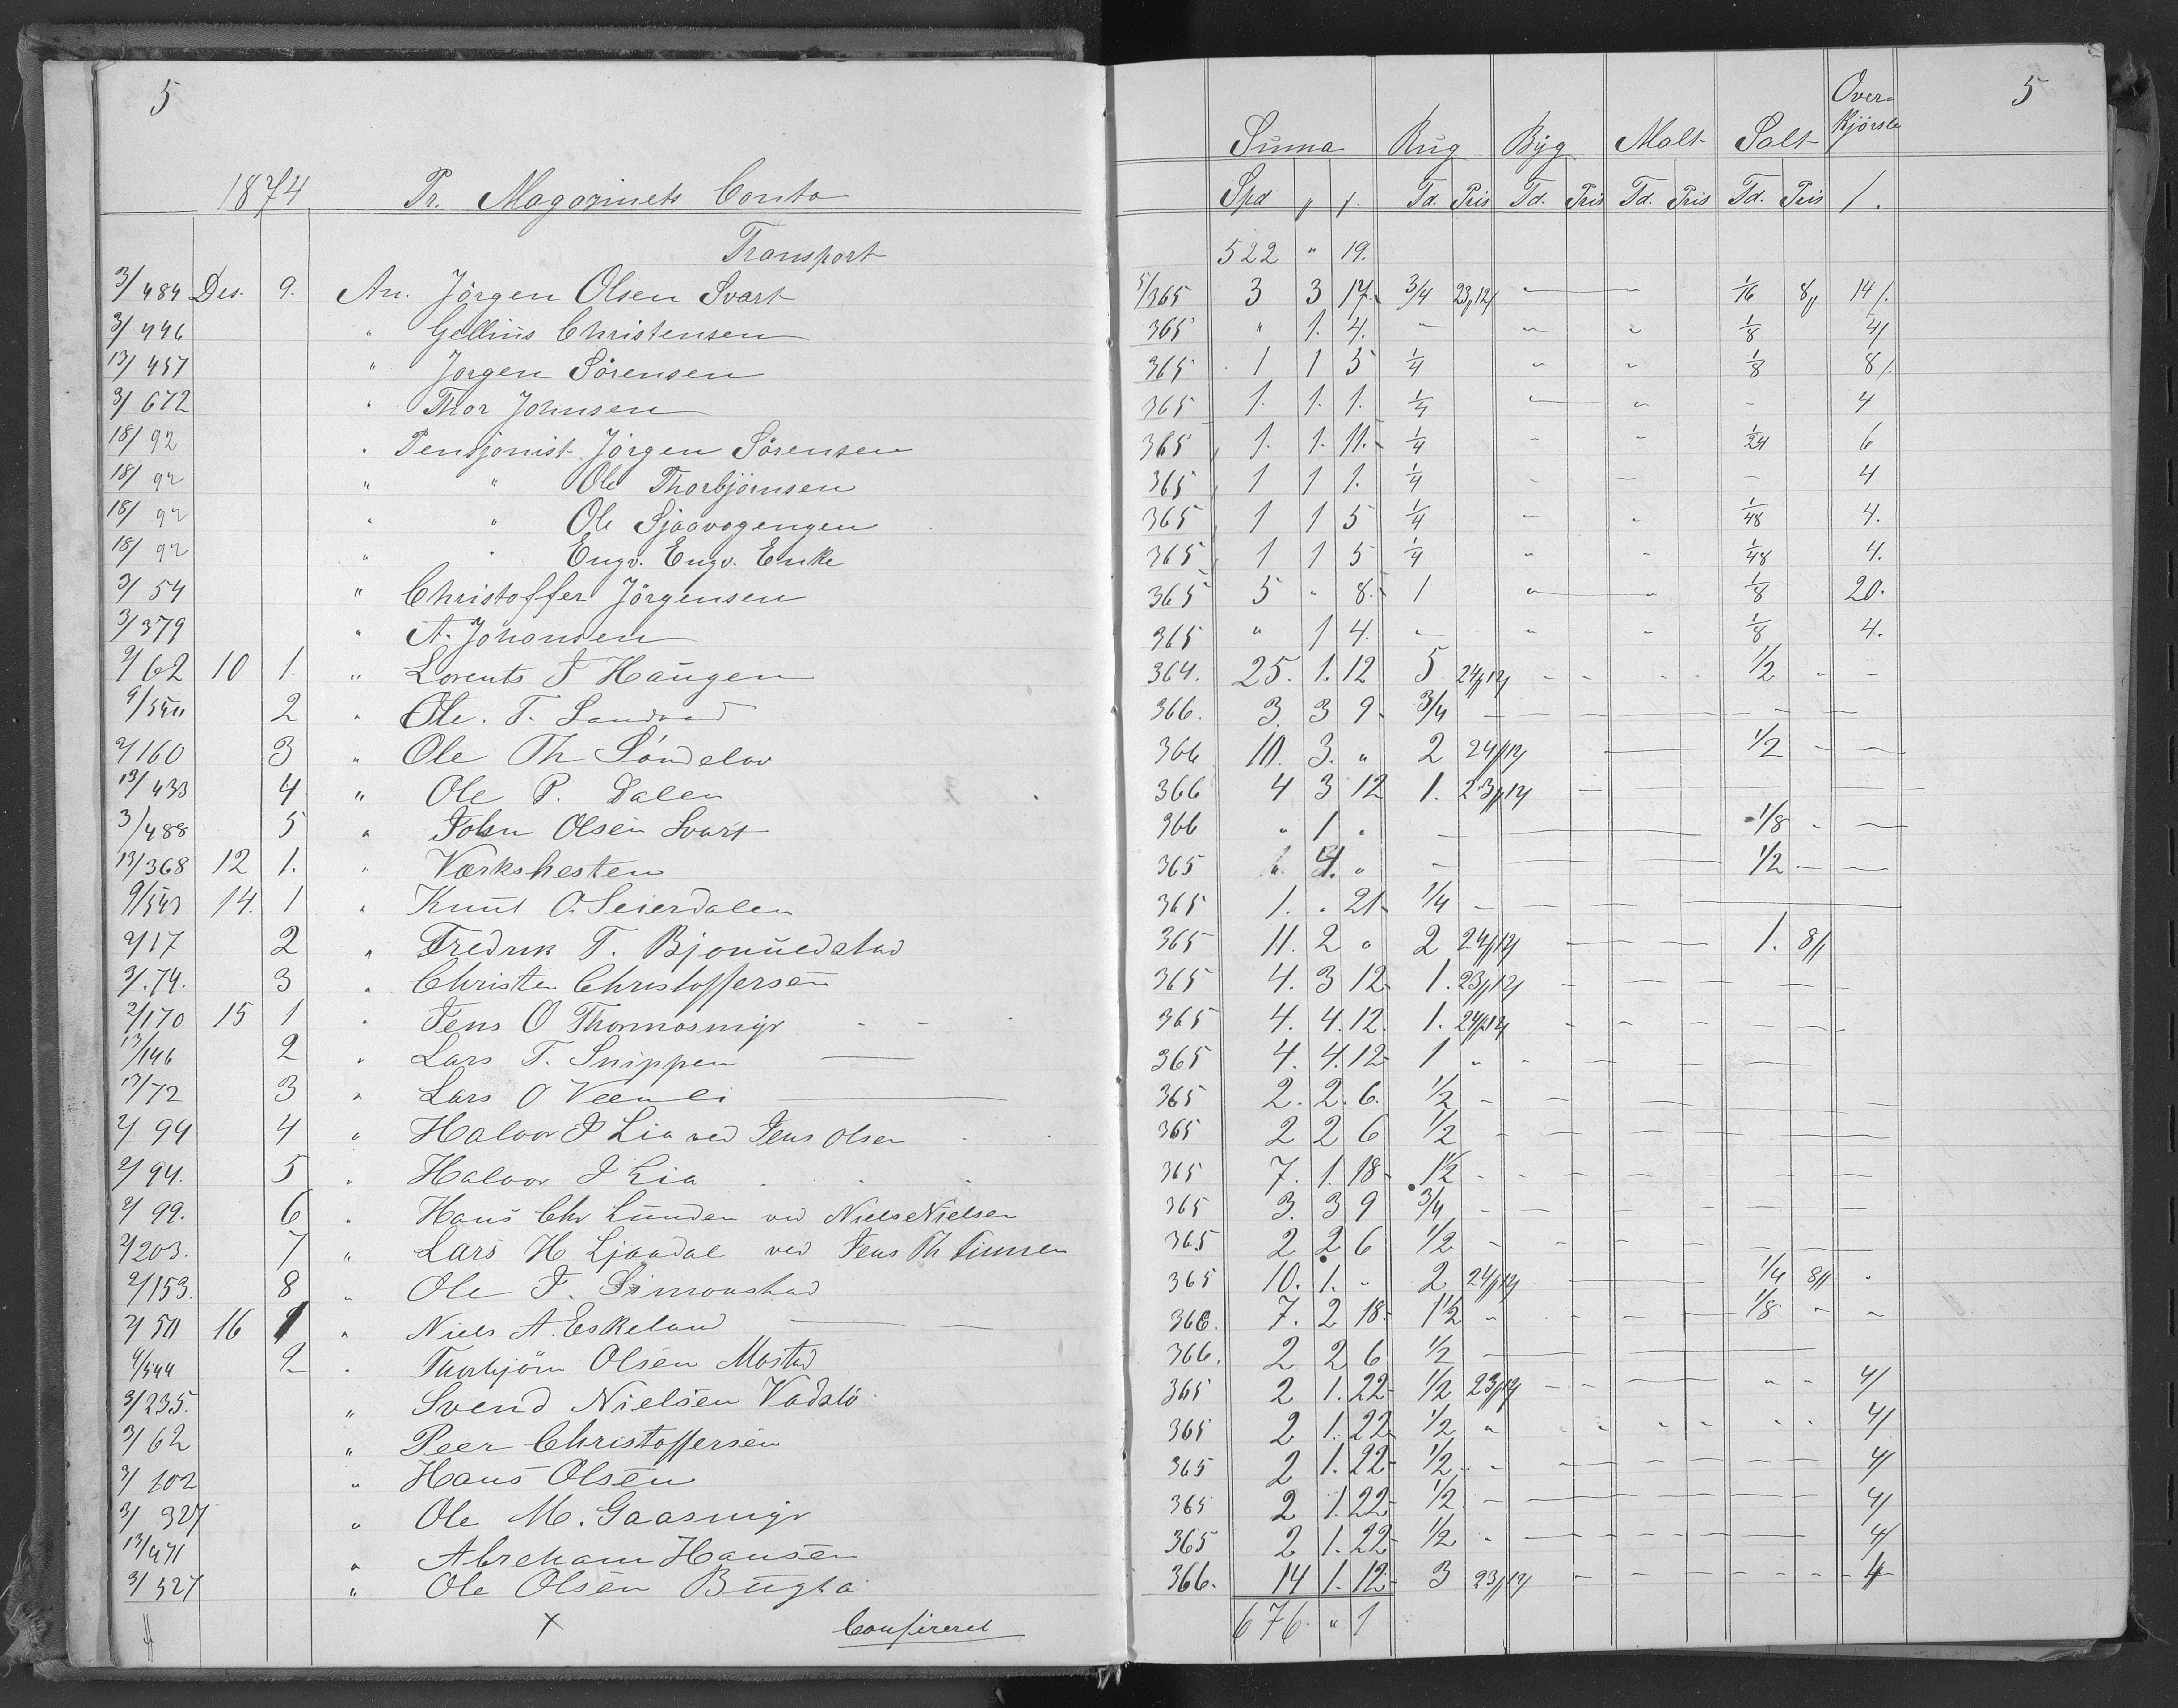 5
1874 Pr. Magazinets Conto
Transport
3/484 Des. 9. An. Jörgen Olsen Svart
3/446 " Gellius Christensen
13/457 " Jörgen Sörensen
3/672 " Thor Johnsen
18/92 " Pensjonist Jörgen Sörensen
18/92 " " Ole Thorbjörnsen
18/92 " " Ole Sjaavogengen
18/92 " " Engv. Engv. Enke
3/54 " Christoffer Jörgensen
3/379 " A. Johansen
2/62 10 1. " Lorents J Haugen
2 " Ole. T. Sandvad
2/160 3 " Ole Th Söndelav
13/433 4 " Ole P. Dalen
3/488 5 " John Olsen Svart
13/368 12 1. " Værkshesten
9/543 14. 1 " Knut O. Seierdalen
2/17 2 " Fredrik T. Bjonuedstad
3/.74. 3 " Christen Christoffersen
2/170 15 1 " Jens O Thormosmyr
13/146 2 " Lars T. Snippen
13/72 3 " Lars O Veenli
2/94 4 " Halvor J Lia ved Jens Olsen
2/94. 5 " Halvor J Lia
2/99. 6 " Hans Chr Lunden ved Niels Nielsen
2/203. 7 " Lars H Ljaadal ved Jens Th
2/153. 8 " Ole J. Simonstad
2/50 16 1 " Niels A. Eskeland
9/544 2 " Thorbjörn Olsen Mostad
3/235. " Svend Nielsen Vadslö
3/62 " Peer Christoffersen
3/102 " Hans Olsen
3/327 " Ole M. Gaasmyr
13/471 " Abreham Hansen
3/327 " Ole Olsen Bugta
x Confereret
5
Summa Rug Byg Malt Salt Over-kjörsle
Spd " /. Td. Pris Td. Pris Td. Pris Td. Pris /.
522 " 19.
5/365 3 3 17. 3/4 23,12/ 1/16 8" 14/.
365 " 1. 4. " " " 1/8 4/
365 1 1 5 1/4 " " 1/8 8/.
365 1. 1. 1. 1/4 " " - 4
365 1. 1. 11. 1/4 " " 1/24 6
365 1 1 1. 1/4 - - - 4
365 1 1 5 1/4 - " 1/48 4.
365 1 1 5 1/4 " - 1/48 4.
365 5 " 8. 1 " " 1/8 20.
365 " 1 4. " " " 1/8 4.
364. 25. 1. 12 5 24,12/ - - - - 1/2 - -
366. 3. 3 9 3/4 - - - - - - -
366 10. 3. " 2 24,12/ - 1/2 - -
366 4 3 12 1. 23,12/ - - - -
366 " 1 " - - - 1/8 - -
365 " 4. " - - 1/2 - -
365 1. " 21 1/4 - - - -
365 11. 2 " 2 24,12/ - - - 1. 8"
365 4. 3 12 1. 23,12/ - - - - - -
365 4. 4. 12. 1. 24,12/ - - - - - -
365 4. 4. 12 1 " - - - - -
365 2. 2. 6. 1/2 - - - - -
365 2 2 6 1/2 - - - - - -
365 7. 1. 18 1 1/2 - - - - - - -
365 3. 3 9 3/4 - - - - - - -
365 2 2 6 1/2 - - - - - -
365 10. 1. " 2 24,12/ - - 1/4 8" "
366. 7. 2 18 1 1/2 " - - - 1/8 - "
366. 2 2 6 1/2 - - -
365 2 1. 22 1/2 23,12/ - - - - " " 4/
365 2 1. 22 1/2 " " " " " " " 4/
365 2 1. 22 1/2 " - - - - - - 4/
365 2 1. 22 1/2 - - - - - 4/
365 2 1. 22 1/2 " - - - - - 4/
366. 14 1. 12 3 23,12/ - - - - - - 4
676. " 1